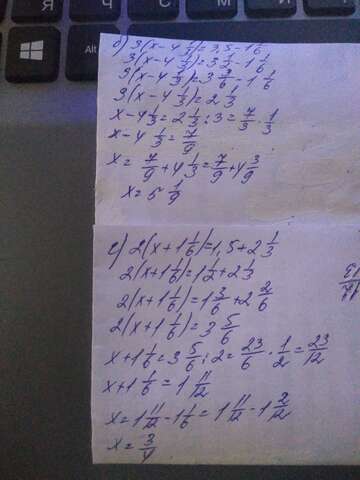 Alt
Я
б) 3(x-4 1/3)=3,5-1 1/6
3(x-4 1/3)=3 1/2-1 1/6
3(x-4 1/3)=3 3/6-1 1/6
3(x-4 1/3)=2 1/3
x-4 1/3=2 1/3:3=7/3·1/3
x-4 1/3=7/9
x=7/9+4 1/3=7/9+4 3/9
x=5 1/9
е) 2(x+1 1/6)=1,5+2 1/3
2(x+1 1/6)=1 1/2+2 1/3
2(x+1 1/6)=1 3/6+2 2/6
2(x+1 1/6)=3 5/6
x+1 1/6=3 5/6:2=23/6·1/2=23/12
x+1 1/6=1 11/12
x=1 11/12-1 1/6=1 11/12-1 2/12
x=3/4